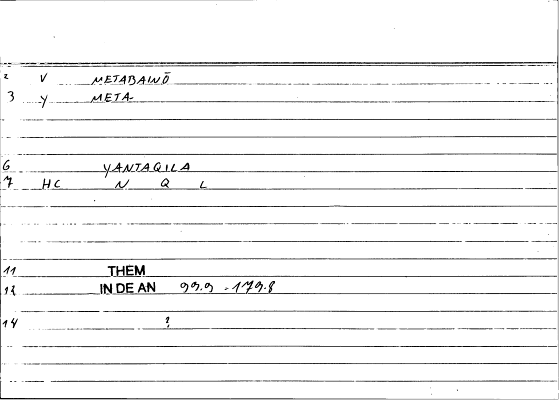 2 V METABAINŌ
3 Y META-
6 YANTAQILA
7 HC N Q L
11 THEM
12 IN DE AN 99.9 - 179.8
14 ?